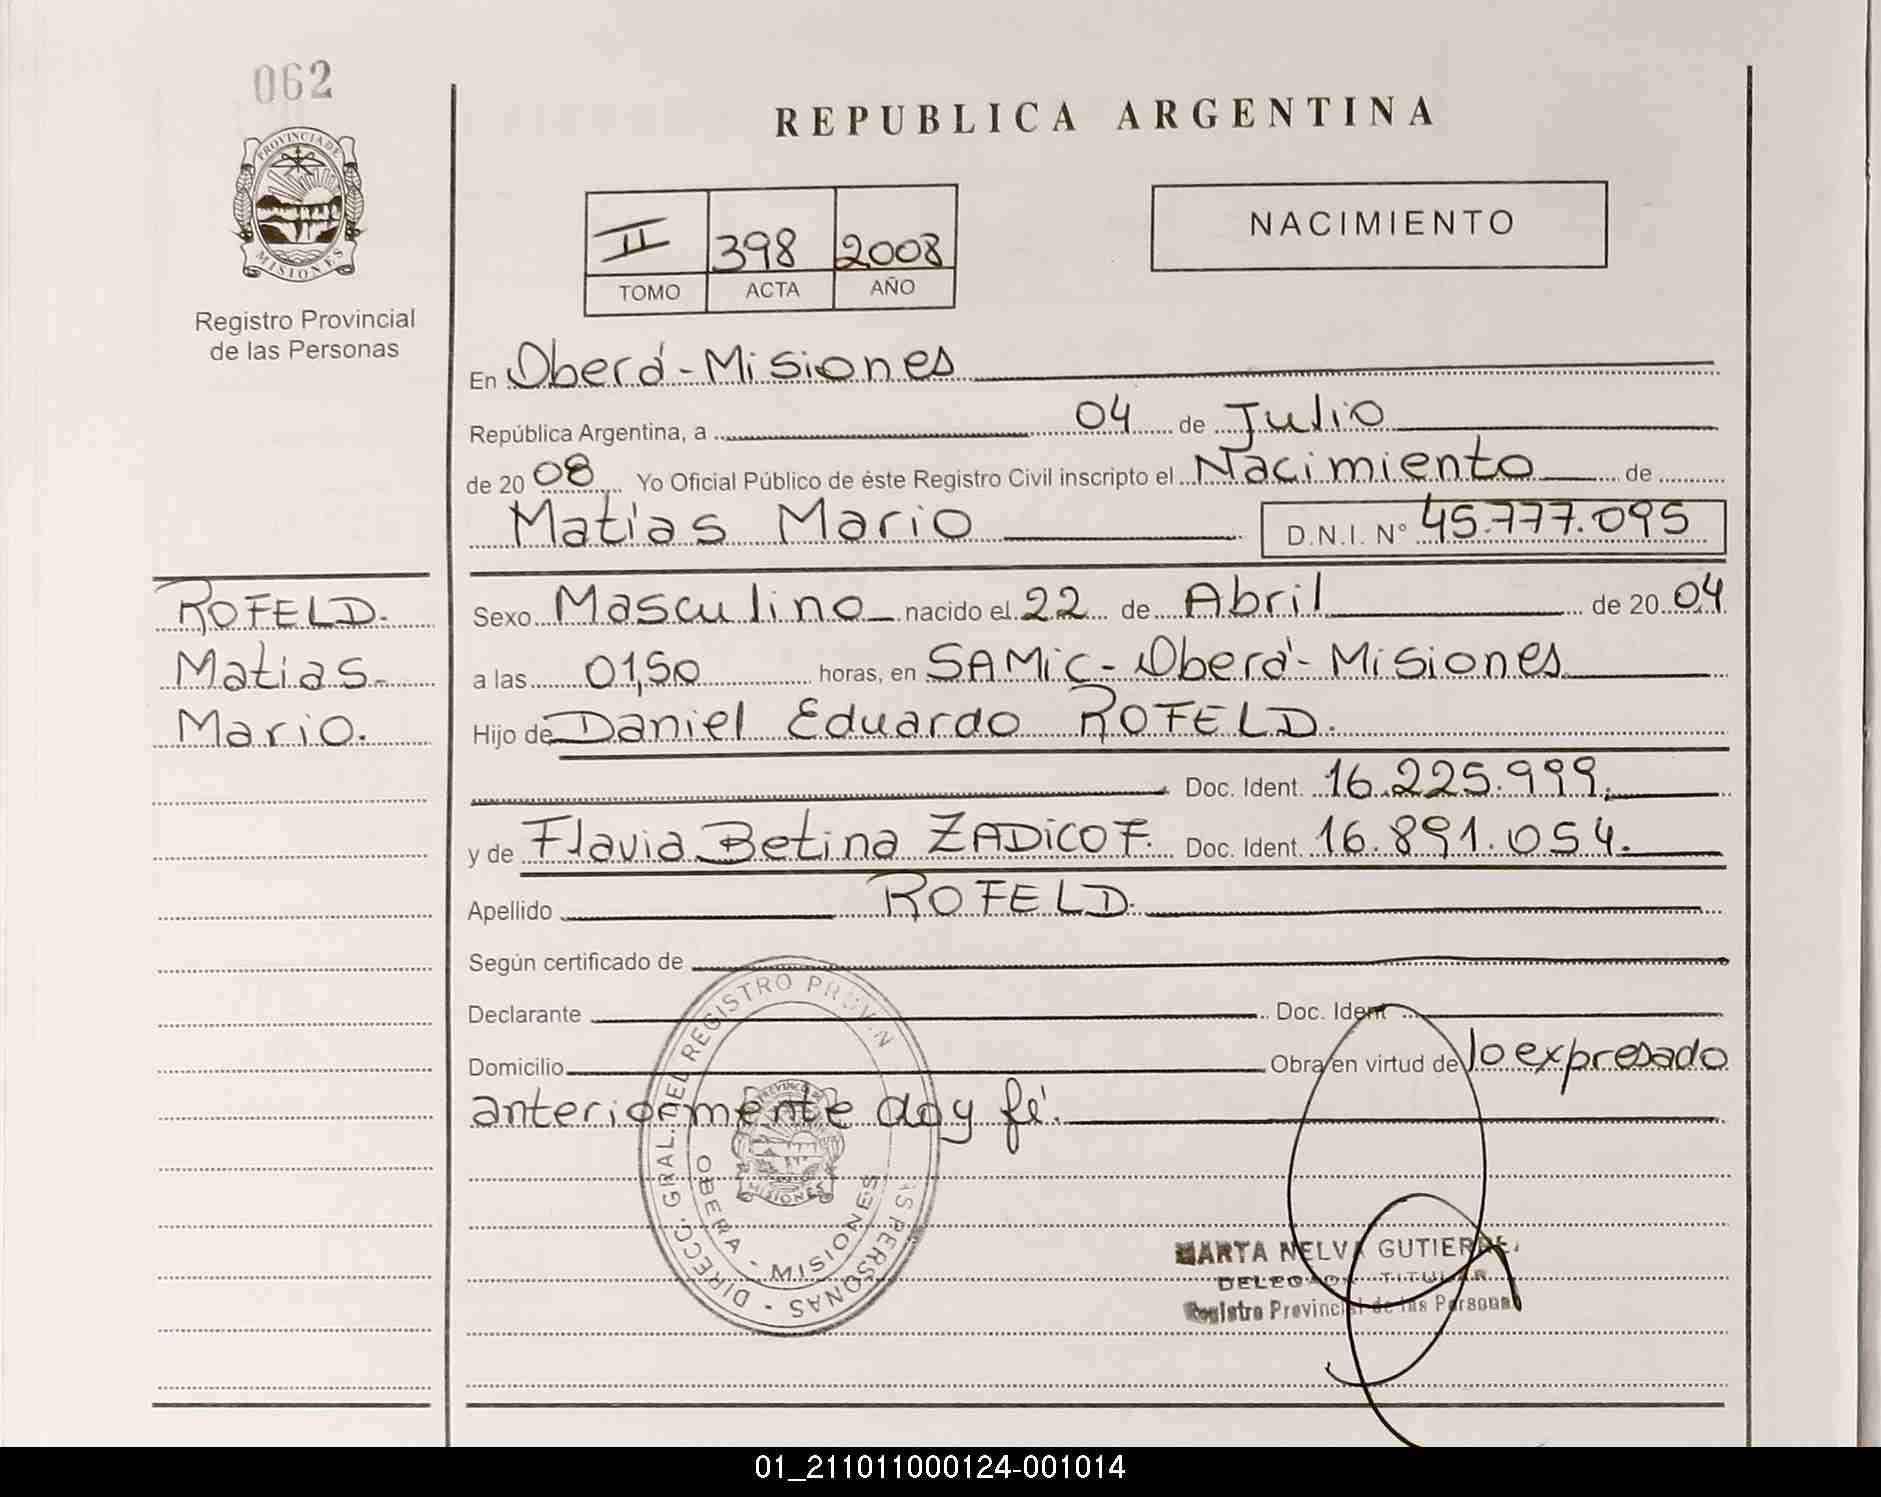 062
PROVINCIA DE
MISIONES
Registro Provincial
de las Personas
REPUBLICA ARGENTINA
II 398 2008
TOMO ACTA AÑO
NACIMIENTO
En Oberá - Misiones
República Argentina, a 04 de Julio
de 20 08 Yo Oficial Público de éste Registro Civil inscripto el Nacimiento de
Matias Mario D.N.I. Nº 45.777.095
ROFELD.
Matias
Mario.
Sexo Masculino nacido el 22 de Abril de 20 04
a las 01,50 horas, en SAMiC - Oberá - Misiones
Hijo de Daniel Eduardo ROFELD.
Doc. Ident. 16.225.999.
y de Flavia Betina ZADiCOF. Doc. Ident. 16.891.054.
Apellido ROFELD.
Según certificado de
Declarante Doc. Ident
Domicilio Obra en virtud de lo expresado
anteriormente doy fé.
DIRECC. GRAL. DEL REGISTRO PROVIN AS PERSONAS -
OBERA - MISIONES
MISIONES
MARTA NELVA GUTIERRE
DELEGADA TITULAR
Registro Provincial de las Personas
01_211011000124-001014